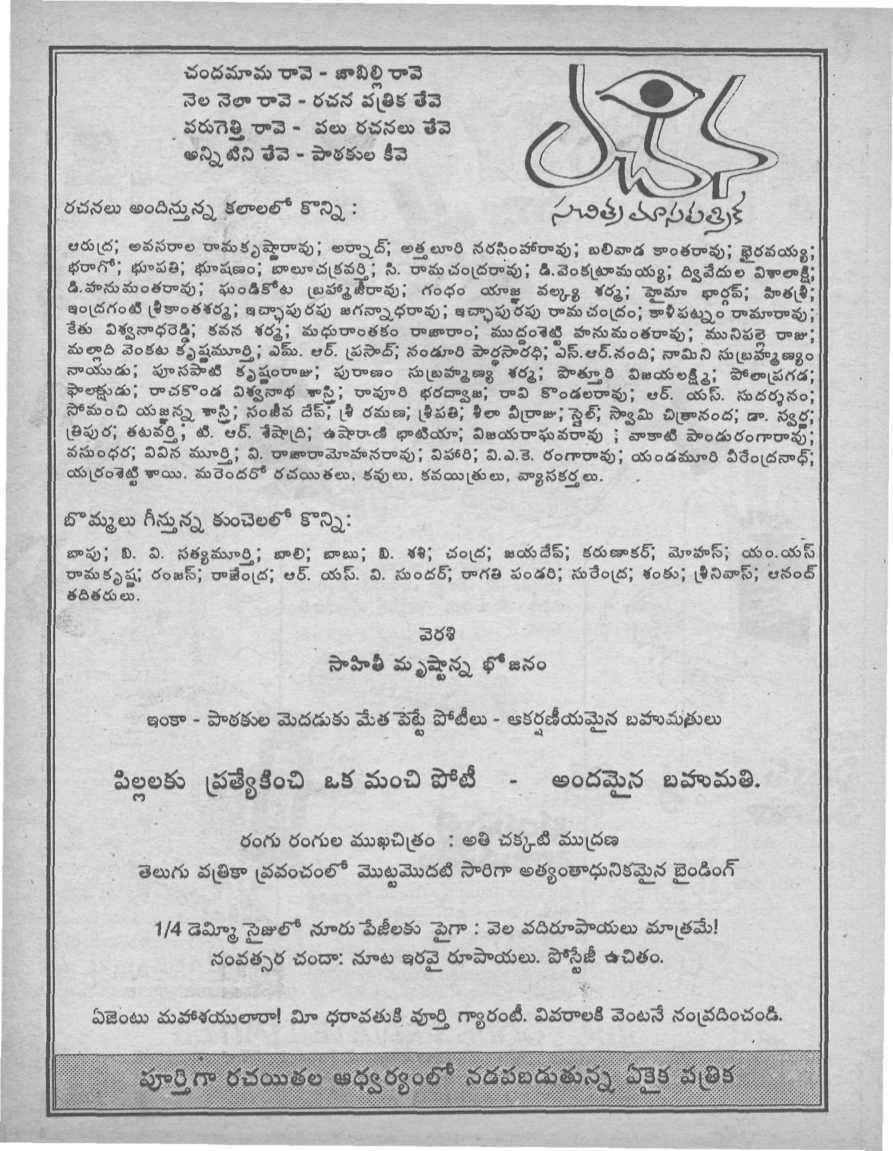 చందమామ రావె - జాబిల్లి రావె
నెల నెలా రావె - రచన పత్రిక తేవె
పరుగెత్తి రావె - పలు రచనలు తేవె
అన్నిటిని తేవె - పాఠకుల కీవె
రచన
సచిత్ర మాసపత్రిక
రచనలు అందిస్తున్న కలాలలో కొన్ని :
ఆరుద్ర; అవసరాల రామకృష్ణారావు; అర్నాద్; అత్తలూరి నరసింహారావు; బలివాడ కాంతరావు; భైరవయ్య;
భరాగో; భూపతి; భూషణం; బాలూచక్రవర్తి; సి. రామచంద్రరావు; డి.వెంకట్రామయ్య; ద్వివేదుల విశాలాక్షి;
డి.హనుమంతరావు; ఘండికోట బ్రహ్మాజీరావు; గంధం యాజ్ఞ వల్క్య శర్మ; హైమా భార్గవ్; హితశ్రీ;
ఇంద్రగంటి శ్రీకాంతశర్మ; ఇచ్ఛాపురపు జగన్నాధరావు; ఇచ్ఛాపురపు రామచంద్రం; కాశీపట్నం రామారావు;
కేతు విశ్వనాధరెడ్డి; కవన శర్మ; మధురాంతకం రాజారాం; ముద్దంశెట్టి హనుమంతరావు; మునిపల్లె రాజు;
మల్లాది వెంకట కృష్ణమూర్తి; ఎమ్. ఆర్. ప్రసాద్; నండూరి పార్థసారధి; ఎస్.ఆర్.నంది; నామిని సుబ్రహ్మణ్యం
నాయుడు; పూసపాటి కృష్ణంరాజు; పురాణం సుబ్రహ్మణ్య శర్మ; పొత్తూరి విజయలక్ష్మి; పోలాప్రగడ;
ఫాలాక్షుడు; రాచకొండ విశ్వనాథ శాస్త్రి; రావూరి భరద్వాజ; రావి కొండలరావు; ఆర్. యస్. సుదర్శనం;
సోమంచి యజ్ఞన్న శాస్త్రి; సంజీవ దేవ్; శ్రీ రమణ; శ్రీపతి; శీలా వీర్రాజు; స్టైల్; స్వామి చిత్రానంద; డా. స్వర్ణ;
త్రిపుర; తటవర్తి; టి. ఆర్. శేషాద్రి; ఉషారాణి భాటియా; విజయరాఘవరావు ; వాకాటి పాండురంగారావు;
వసుంధర; వివిన మూర్తి; వి. రాజారామోహనరావు; విహారి; వి.ఎ.కె. రంగారావు; యండమూరి వీరేంద్రనాథ్;
యర్రంశెట్టి శాయి. మరెందరో రచయితలు, కవులు, కవయిత్రులు, వ్యాసకర్తలు.
బొమ్మలు గీస్తున్న కుంచెలలో కొన్ని:
బాపు; బి. వి. సత్యమూర్తి; బాలి; బాబు; బి. శశి; చంద్ర; జయదేవ్; కరుణాకర్; మోహన్; యం.యస్
రామకృష్ణ; రంజన్; రాజేంద్ర; ఆర్. యస్. వి. సుందర్; రాగతి పండరి; సురేంద్ర; శంకు; శ్రీనివాస్; ఆనంద్
తదితరులు.
వెరశి
సాహితీ మృష్టాన్న భోజనం
ఇంకా - పాఠకుల మెదడుకు మేత పెట్టే పోటీలు - ఆకర్షణీయమైన బహుమతులు
పిల్లలకు ప్రత్యేకించి ఒక మంచి పోటీ - అందమైన బహుమతి.
రంగు రంగుల ముఖచిత్రం : అతి చక్కటి ముద్రణ
తెలుగు పత్రికా ప్రపంచంలో మొట్టమొదటి సారిగా అత్యంతాధునికమైన బైండింగ్
1/4 డెమ్మీ సైజులో నూరు పేజీలకు పైగా : వెల పదిరూపాయలు మాత్రమే!
సంవత్సర చందా: నూట ఇరవై రూపాయలు. పోస్టేజీ ఉచితం.
ఏజెంటు మహాశయులారా! మీ ధరావతుకి పూర్తి గ్యారంటీ. వివరాలకి వెంటనే సంప్రదించండి.
పూర్తిగా రచయితల ఆధ్వర్యంలో నడపబడుతున్న ఏకైక పత్రిక